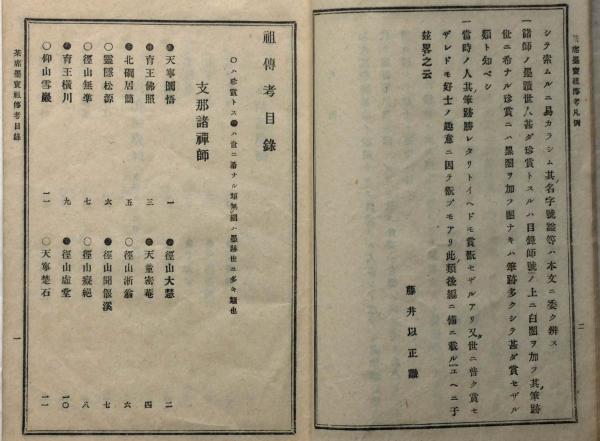 茶席墨寳祖傳考凡例
二
シテ索ムルニ易カラシム其名字號諡等ハ本文ニ委ク辨ス
一諸師ノ墨蹟世人甚ダ珍賞トスルハ目錄師號ノ上ニ白圈ヲ加フ其筆跡
世ニ希ナル珍賞ニハ黑圈ヲ加フ圈ナキハ筆跡多クシテ甚ダ賞セザル
類ト知ベシ
一當時ノ人其筆跡勝レタリトイヘドモ賞翫セザルアリ又世ニ普ク賞セ
ザレドモ好士ノ趣意ニ因テ翫ブモアリ此類後編ニ備ニ載ル
玆畧之云
藤井以正識
祖傳考目錄
○ハ珍賞トス
支那諸禪師
天寧圜悟 一
徑山大慧 二
育王佛照 三
天童密菴 四
北磵居簡 五
○徑山浙翁 六
○靈隱松源 六
徑山偃溪 七
○徑山無準 七
○徑山癡絕 八
育王橫川 九
徑山虛堂 一〇
○仰山雪巖 一一
○天寧楚石 一一
茶席墨寳祖傳考目錄
一